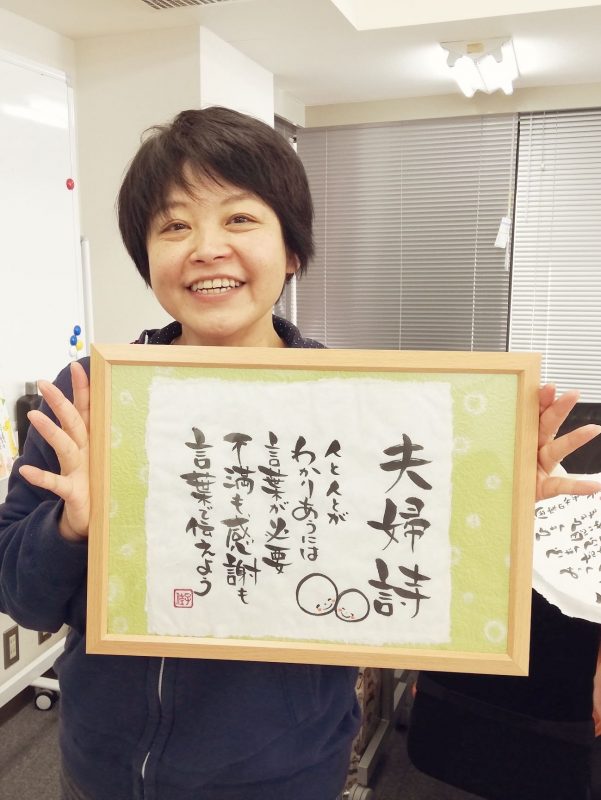 夫婦詩
人と人とが
わかりあうには
言葉が必要
不満も感謝も
言葉で伝えよう